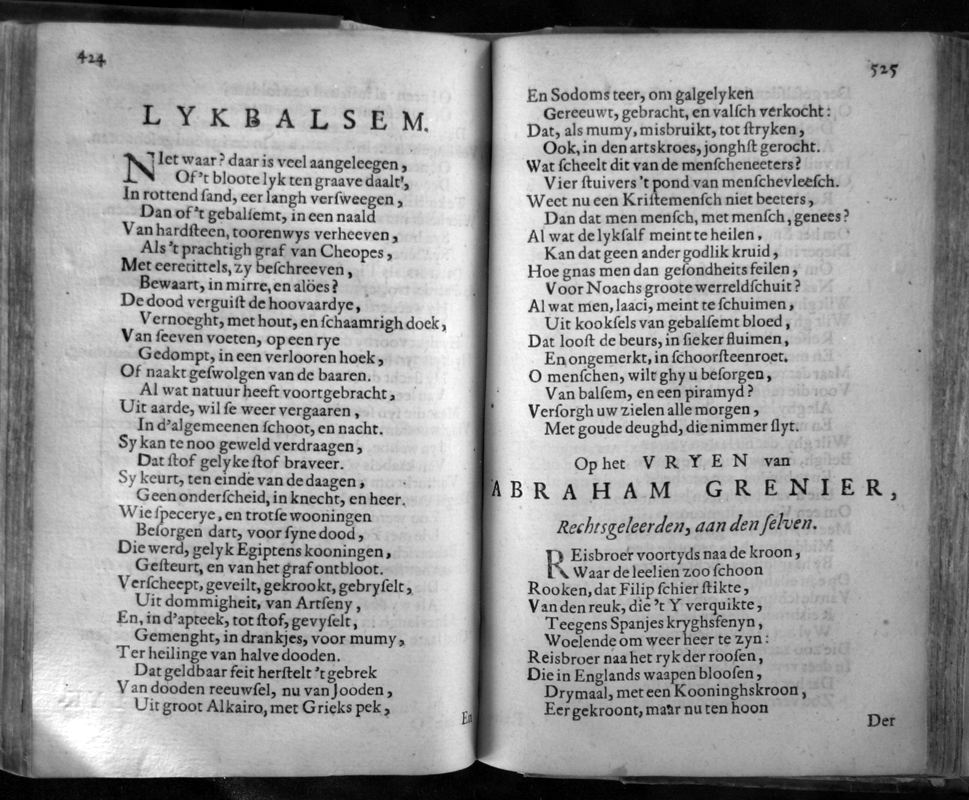 424
LYKBALSEM.
NIet waar? daar is veel aangeleegen,
Of 't bloote lyk ten graave daalt',
In rottend ſand, eer langh verſweegen,
Dan of 't gebalſemt, in een naald
Van hardſteen, toorenwys verheeven,
Als 't prachtigh graf van Cheopes,
Met eeretittels, zy beſchreeven,
Bewaart, in mirre, en alöes?
De dood verguiſt de hoovaardye,
Vernoeght, met hout, en ſchaamrigh doek,
Van ſeeven voeten, op een rye
Gedompt, in een verlooren hoek,
Of naakt geſwolgen van de baaren.
Al wat natuur heeft voortgebracht,
Uit aarde, wil ſe weer vergaaren,
In d'algemeenen ſchoot, en nacht.
Sy kan te noo geweld verdraagen,
Dat ſtof gelyke ſtof braveer.
Sy keurt, ten einde van de daagen,
Geen onderſcheid, in knecht, en heer.
Wie ſpecerye, en trotſe wooningen
Beſorgen dart, voor ſyne dood,
Die werd, gelyk Egiptens kooningen,
Geſteurt, en van het graf ontbloot.
Verſcheept, geveilt, gekrookt, gebryſelt,
Uit dommigheit, van Artſeny,
En, in d'apteek, tot ſtof, gevyſelt,
Gemenght, in drankjes, voor mumy,
Ter heilinge van halve dooden.
Dat geldbaar feit herſtelt 't gebrek
Van dooden reeuwſel, nu van Jooden,
Uit groot Alkairo, met Grieks pek,
En
525
En Sodoms teer, om galgelyken
Gereeuwt, gebracht, en valſch verkocht:
Dat, als mumy, misbruikt, tot ſtryken,
Ook, in den artskroes, jonghſt gerocht.
Wat ſcheelt dit van de menſcheneeters?
Vier ſtuivers 't pond van menſchevleeſch.
Weet nu een Kriſtemenſch niet beeters,
Dan dat men menſch, met menſch, genees?
Al wat de lykſalf meint te heilen,
Kan dat geen ander godlik kruid,
Hoe gnas men dan geſondheits feilen,
Voor Noachs groote werreldſchuit?
Al wat men, laaci, meint te ſchuimen,
Uit kookſels van gebalſemt bloed,
Dat looſt de beurs, in ſieker fluimen,
En ongemerkt, in ſchoorſteenroet.
O menſchen, wilt ghy u beſorgen,
Van balſem, en een piramyd?
Verſorgh uw zielen alle morgen,
Met goude deughd, die nimmer ſlyt.
Op het VRYEN van
ABRAHAM GRENIER,
Rechtsgeleerden, aan den ſelven.
REisbroer voortyds naa de kroon,
Waar de leelien zoo ſchoon
Rooken, dat Filip ſchier ſtikte,
Van den reuk, die 't Y verquikte,
Teegens Spanjes kryghsfenyn,
Woelende om weer heer te zyn:
Reisbroer naa het ryk der rooſen,
Die in Englands waapen blooſen,
Drymaal, met een Kooninghskroon,
Eer gekroont, maar nu ten hoon
Der